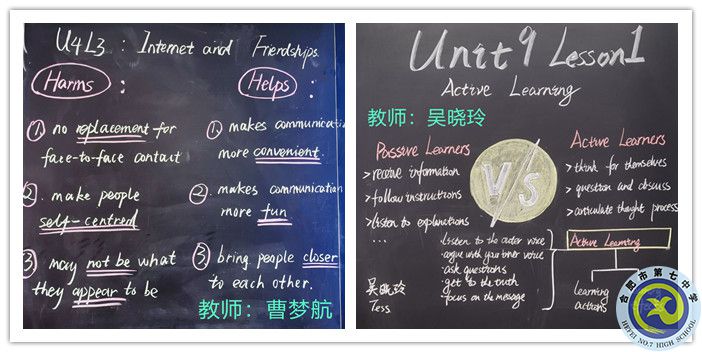 U4L3 : Internet and Friendships
Harms :
① no replacement for
face-to-face contact
② make people
self-centred
③ may not be what
they appear to be
Helps :
① makes communicatio
more convenient.
② makes communication
more fun
③ bring people closer
to each other.
教师：曹梦航
Unit 9 Lesson 1
Active Learning
教师：吴晓玲
Passive Learners
> receive information
> follow instructions
> listen to explanations
...
VS
Active Learners
> think for themselves
> question and discuss
> articulate thought process
· listen to the outer voice
· argue with your inner voice
· ask questions
· get to the truth
· focus on the message
Active Learning
learning
actions
吴晓玲
Tess
合肥市第七中学
HEFEI NO.7 HIGH SCHOOL